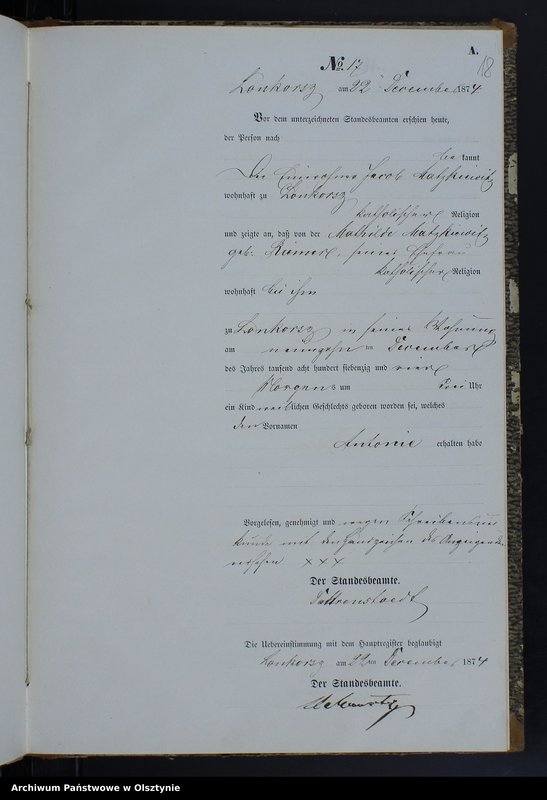 A.
18
No. 17
Lonkorsz am 22 December 1874
Vor dem unterzeichneten Standesbeamten erschien heute,
der Person nach
kannt
Der Einwohner Jacob Matzkiewitz
wohnhaft zu Lonkorsz
katholischer Religion
und zeigte an, daß von der Mathilde Matzkiewitz
geb. Riemer, seiner Ehefrau
katholischer Religion
wohnhaft bei ihm
zu Lonkorsz in seiner Wohnung
am neunzehn ten December
des Jahres tausend acht hundert siebenzig und vier
Morgens um drei Uhr
ein Kind weiblichen Geschlechts geboren worden sei, welches
den Vornamen
Antonie erhalten habe
Vorgelesen, genehmigt und wegen Schreibensun
kunde mit den Handzeichen des Anzeigenden
versehen XXX
Der Standesbeamte.
Die Uebereinstimmung mit dem Hauptregister beglaubigt
Lonkorsz am 22 ten December 1874
Der Standesbeamte.
Archiwum Państwowe w Olsztynie